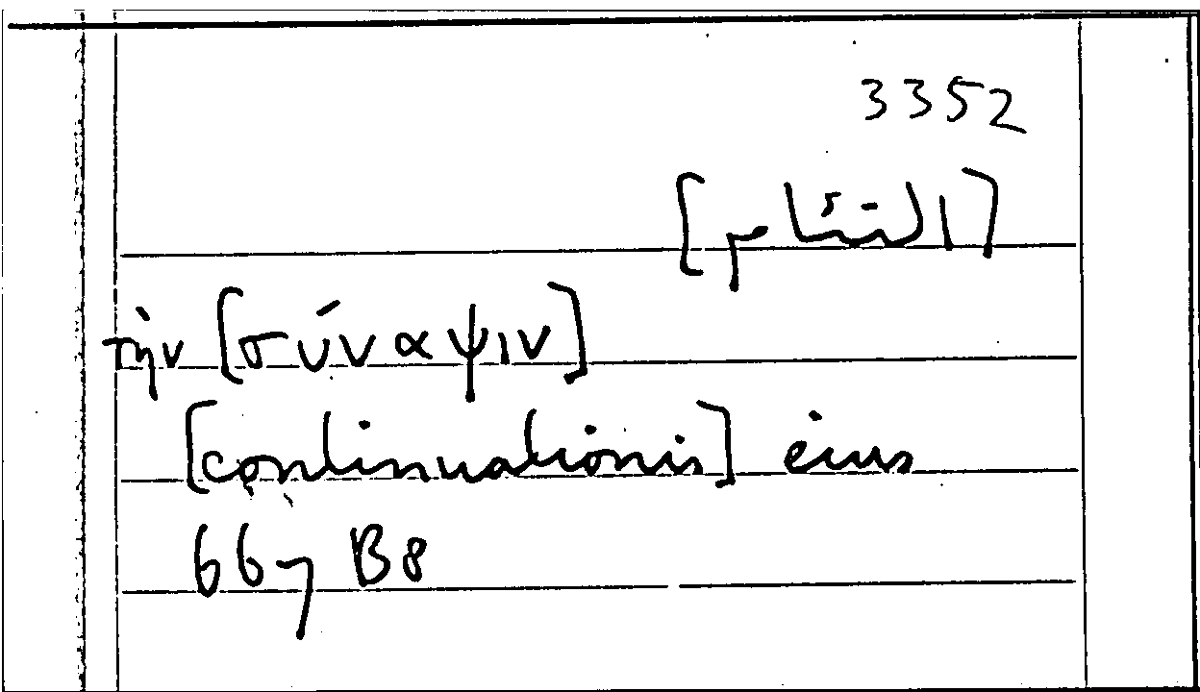 3352
[التئام]
τὴν [σύναψιν]
[continuationis] eius
667 B8